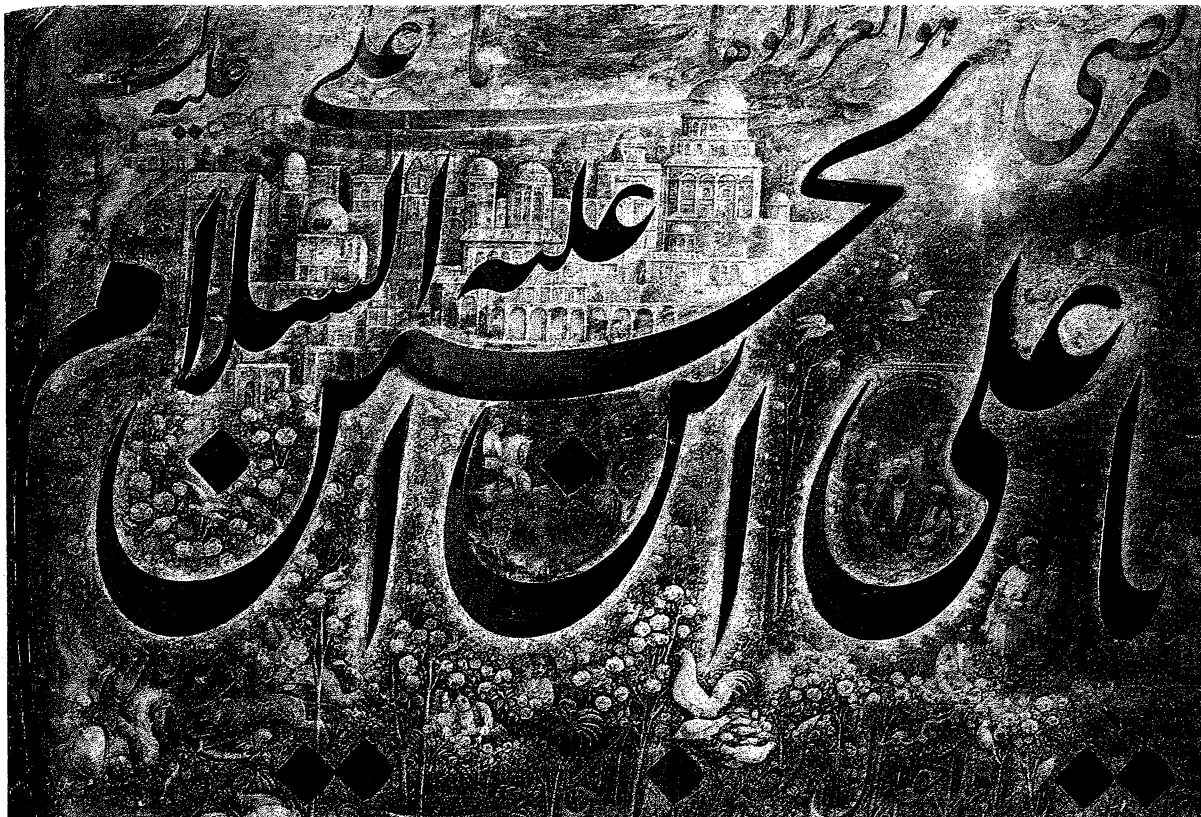 هو العزیز
یا علی مرتضی علیه
یا علی ابن الحسین علیه السلام